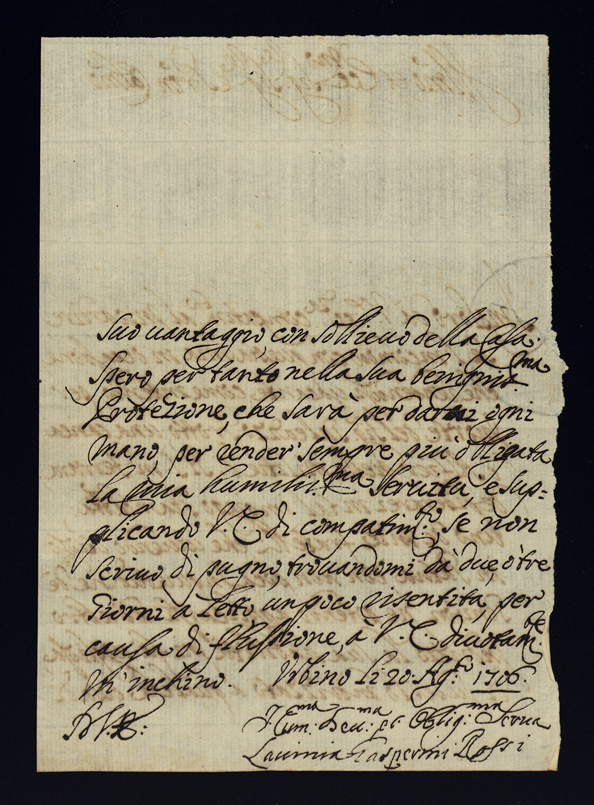 suo uantaggio, con sollieuo della Casa.
Spero per tanto nella sua benignis.ma
Protezione, che sarà per darmi ogni
mano, per render sempre più obligata
la mia humiliss.ma seruitù, e sup=
plicando V.E. di compatim.to, se non
scriuo di pugno, trouandomi dà due, ò tre
Giorni a letto un poco risentita, per
causa di flussione, à V.E. diuotam.te
m'inchino. Vrbino Li 20 Ag.to 1706.
Hum.ma Deu.ma et Oblig.ma Serua
Lauinia Gasperini Rossi